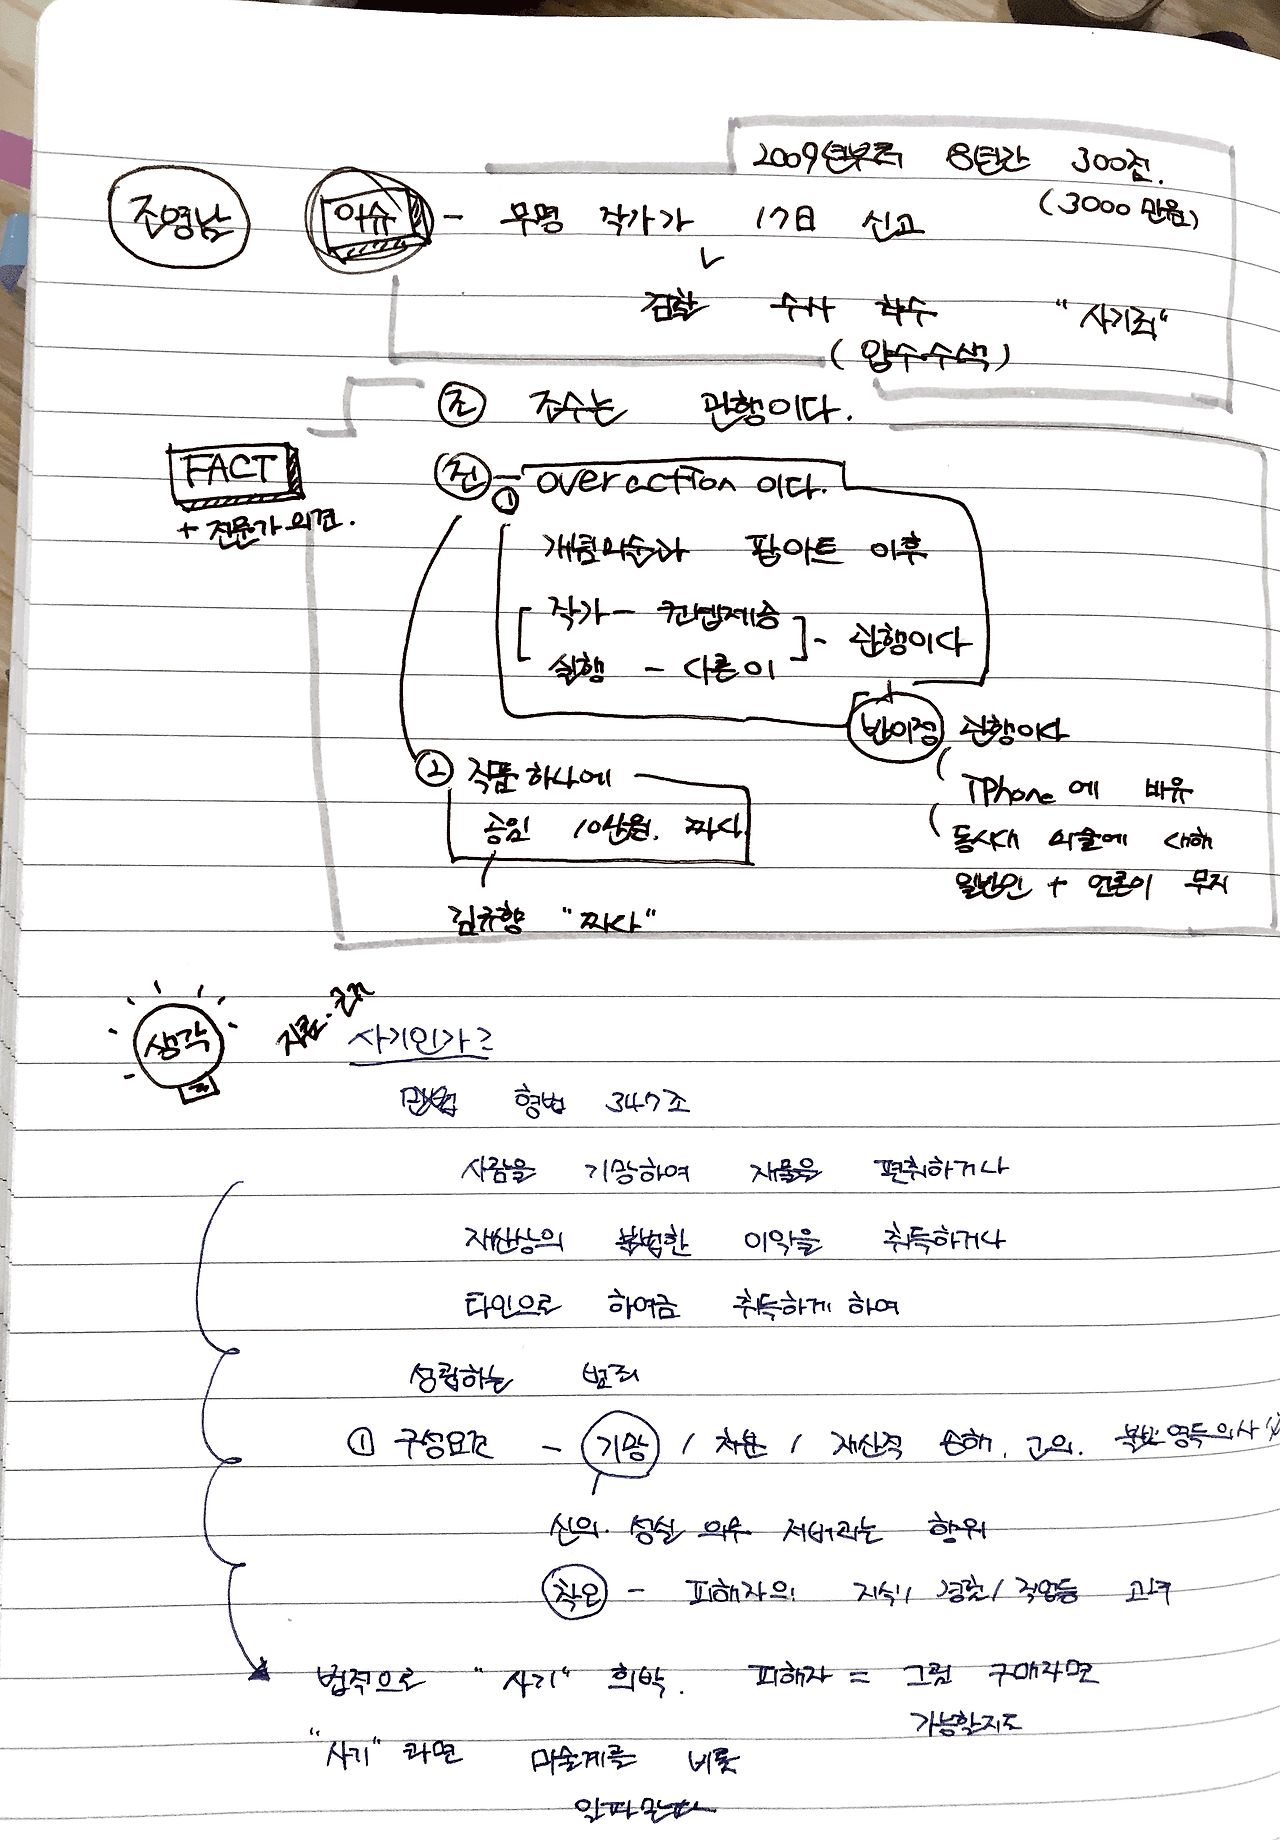 2009년부터 8년간 300점.
(3000만원)
조영남 이슈 - 무명 작가가 17日 신고
검찰 수사 착수 "사기죄"
(압수수색)
조 조수는 관행이다.
FACT
+ 전문가 의견.
진 - ① over action 이다.
개념미술과 팝아트 이후
작가 - 컨셉제공
실행 - 다른이
- 관행이다
반이정 관행이다
② 작품 하나에
공임 10만원. 짜다.
김규항 "짜다"
IPhone에 비유
동시대 미술에 대해
일반인 + 언론이 무지
생각
자료.
사기인가?
형법 347조
사람을 기망하여 재물을 편취하거나
재산상의 불법한 이익을 취득하거나
타인으로 하여금 취득하게 하여
성립하는 범죄
① 구성요건 - 기망 / 처분 / 재산적 손해. 고의. 불법영득의사
신의·성실 의무 저버리는 행위
착오 - 피해자의 지식/경험/직업등 고려
법적으로 "사기" 희박. 피해자 = 그림 구매자면
가능할지도
"사기"라면 미술계를 비롯